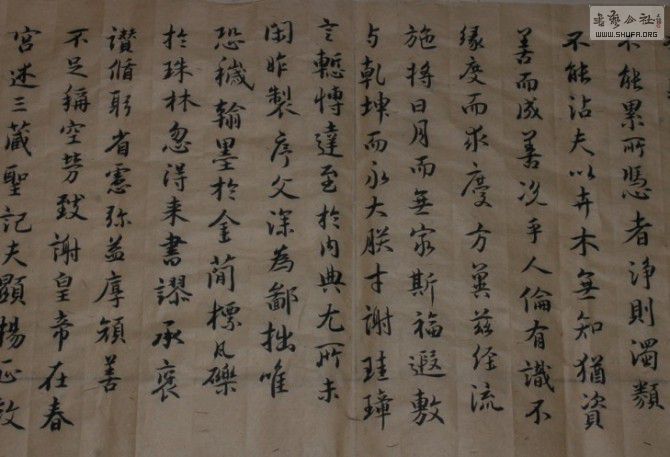 不能累所憑者淨則濁類
不能沾夫以卉木無知猶資
善而成善況乎人倫有識不
緣慶而求慶方冀茲經流
施將日月而無窮斯福遐敷
与乾坤而永大朕才謝珪璋
言慙博達至於內典尤所未
閑昨製序文深為鄙拙唯
恐穢翰墨於金簡標瓦礫
於珠林忽得来書謬承褒
讃循躬省慮弥益厚顏善
不足稱空勞致謝皇帝在春
宮述三藏聖記夫顯揚正教
書藝公社
WWW.SHUFA.ORG